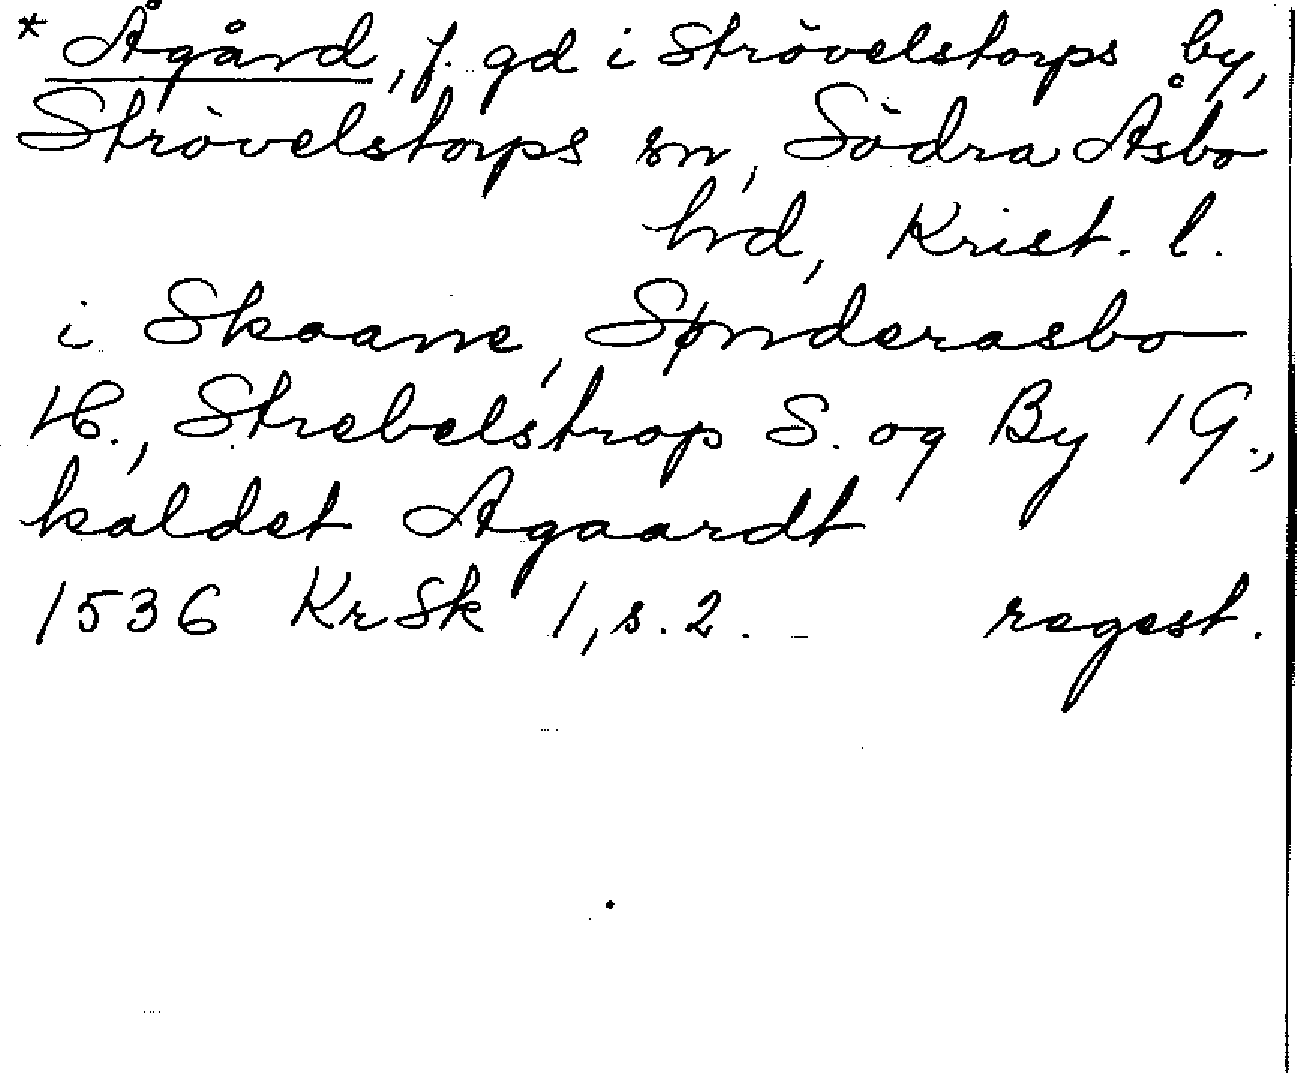 * Ågård, f. gd i Strövelstorps by,
Strövelstorps sn, Södra Åsbo
hrd, Krist. l.
i Skaane, Sønderasbo
H., Strebelstrop S. og By 1 G.,
kaldet Agaardt
1536 KrSk 1, s. 2. regest.